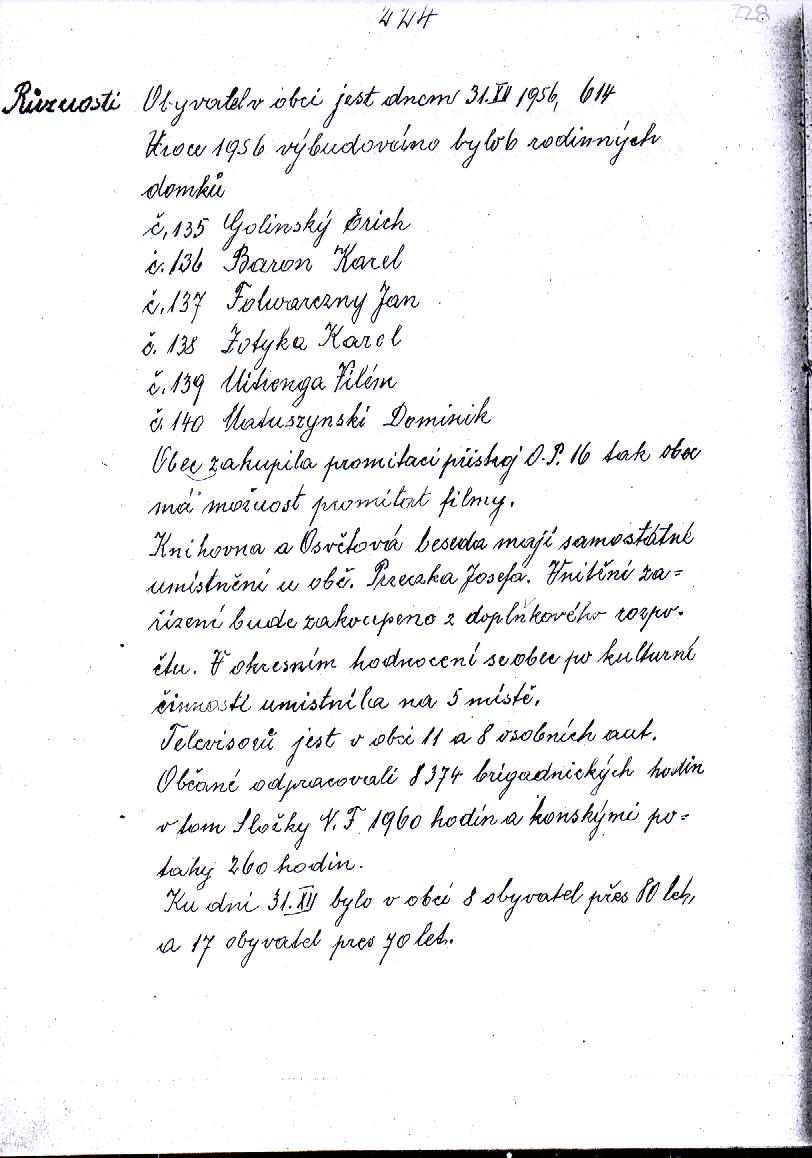 224
228
Různosti Obyvatel v obci jest dnem 31.XII 1956, 614
V roce 1956 výbudováno bylo 6 rodinných
domků
č. 135 Golinský Erich
č. 136 Baron Karel
č. 137 Folwarczny Jan
č. 138 Zotyka Karel
č. 139 Vilém
č. 140 Matuszynski Dominik
Obec zakupila promítací přístroj O.P. 16 tak obec
má možnost promítat filmy.
Knihovna a Osvětová beseda mají samostatné
umístnění u obč. Pzeczka Josefa. Vnitřní za=
řízení bude zakoupeno z doplňkového rozpo-
čtu. V okresním hodnocení se obec po kulturné
činnosti umístnila na 5 místě.
Televisorů jest v obci 11 a 8 osobních aut.
Občané odpracovali 8374 brigadnických hodin
v tom Složky N.F 1960 hodin a konskými po=
tahy 260 hodin.
Ku dni 31.XII bylo v obci 8 obyvatel přes 80 let,
a 17 obyvatel pres 70 let.